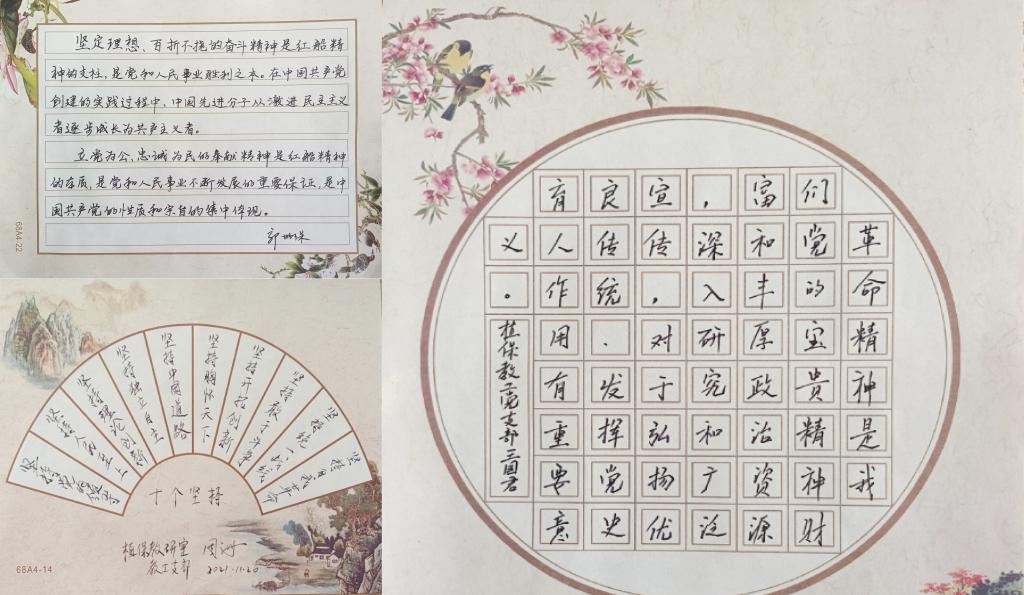 坚定理想、百折不挠的奋斗精神是红船精
神的支柱,是党和人民事业胜利之本。在中国共产党
创建的实践过程中,中国先进分子从激进民主主义
者逐步成长为共产主义者。
立党为公,忠诚为民的奉献精神是红船精神
的本质,是党和人民事业不断发展的重要保证,是中
国共产党的性质和宗旨的集中体现。
68A4-22
坚持党的领导
坚持人民至上
坚持理论创新
坚持独立自主
坚持中国道路
坚持胸怀天下
坚持开拓创新
坚持敢于斗争
坚持统一战线
坚持自我革命
十个坚持
植保教研室 周洲
教工支部 2021.11.20
68A4-14
革命精神是我
们党的宝贵精神财
富和丰厚政治资源
,深入研究和广泛
宣传,对于弘扬优
良传统.发挥党史
育人作用有重要意
义。
植保教工党支部